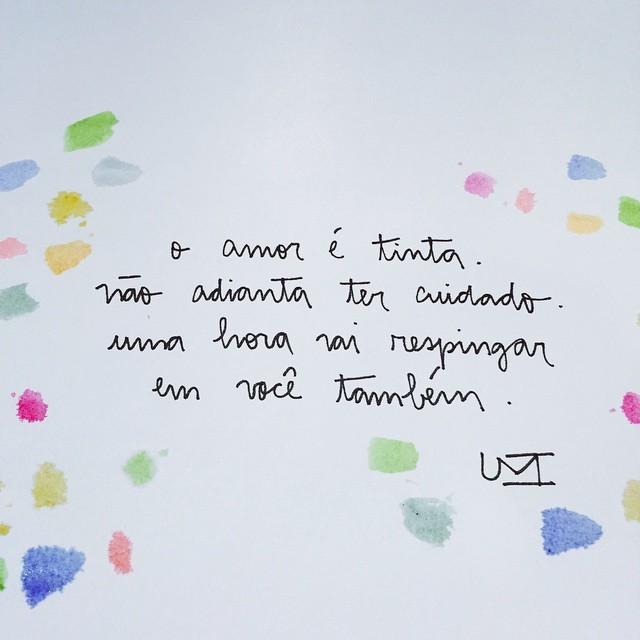 o amor é tinta.
não adianta ter cuidado.
uma hora vai respingar
em você também.